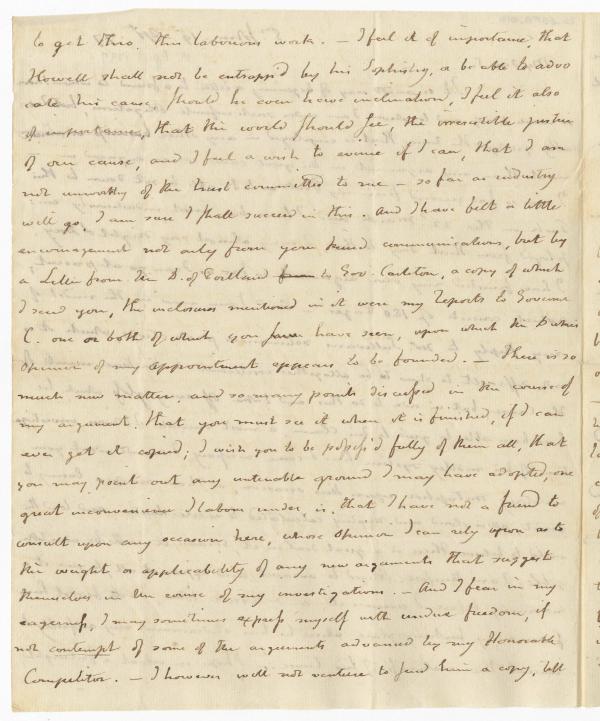 to get thro. this laborious work. — I feel it of importance, that
Howell shall not be entrapp'd by his Sophistry, or be able to advo
cate his cause, should he even have inclination, I feel it also
of importance, that the world should see, the irresistible justice
of our cause, and I feel a wish to evince if I can, that I am
not unworthy of the trust committed to me — so far as industry
will go, I am sure I shall succeed in this. And I have felt a little
encouragement not only from your kind communications, but by
a Letter from the D. of Portland to Gov. Carleton, a copy of which
I send you, the inclosures mentioned in it were my reports to Governor
C. one or both of which you have seen, upon which the Dukes
opinion of my appointment appears to be founded. — There is so
much new matter, and so many points discussed in the course of
my argument, that you must see it when it is finished, if I can
ever get it copied; I wish you to be possess'd fully of them all, that
you may point out any untenable ground I may have adopted, one
great inconvenience I labour under, is, that I have not a friend to
consult upon any occasion here, whose opinion I can rely upon as to
the weight or applicability of any new arguments that suggest
themselves in the course of my investigations. — And I fear in my
eagerness, I may sometimes express myself with undue freedom, if
not contempt of some of the arguments advanced by my Honorable
Competitor. — I however will not venture to send him a copy, till